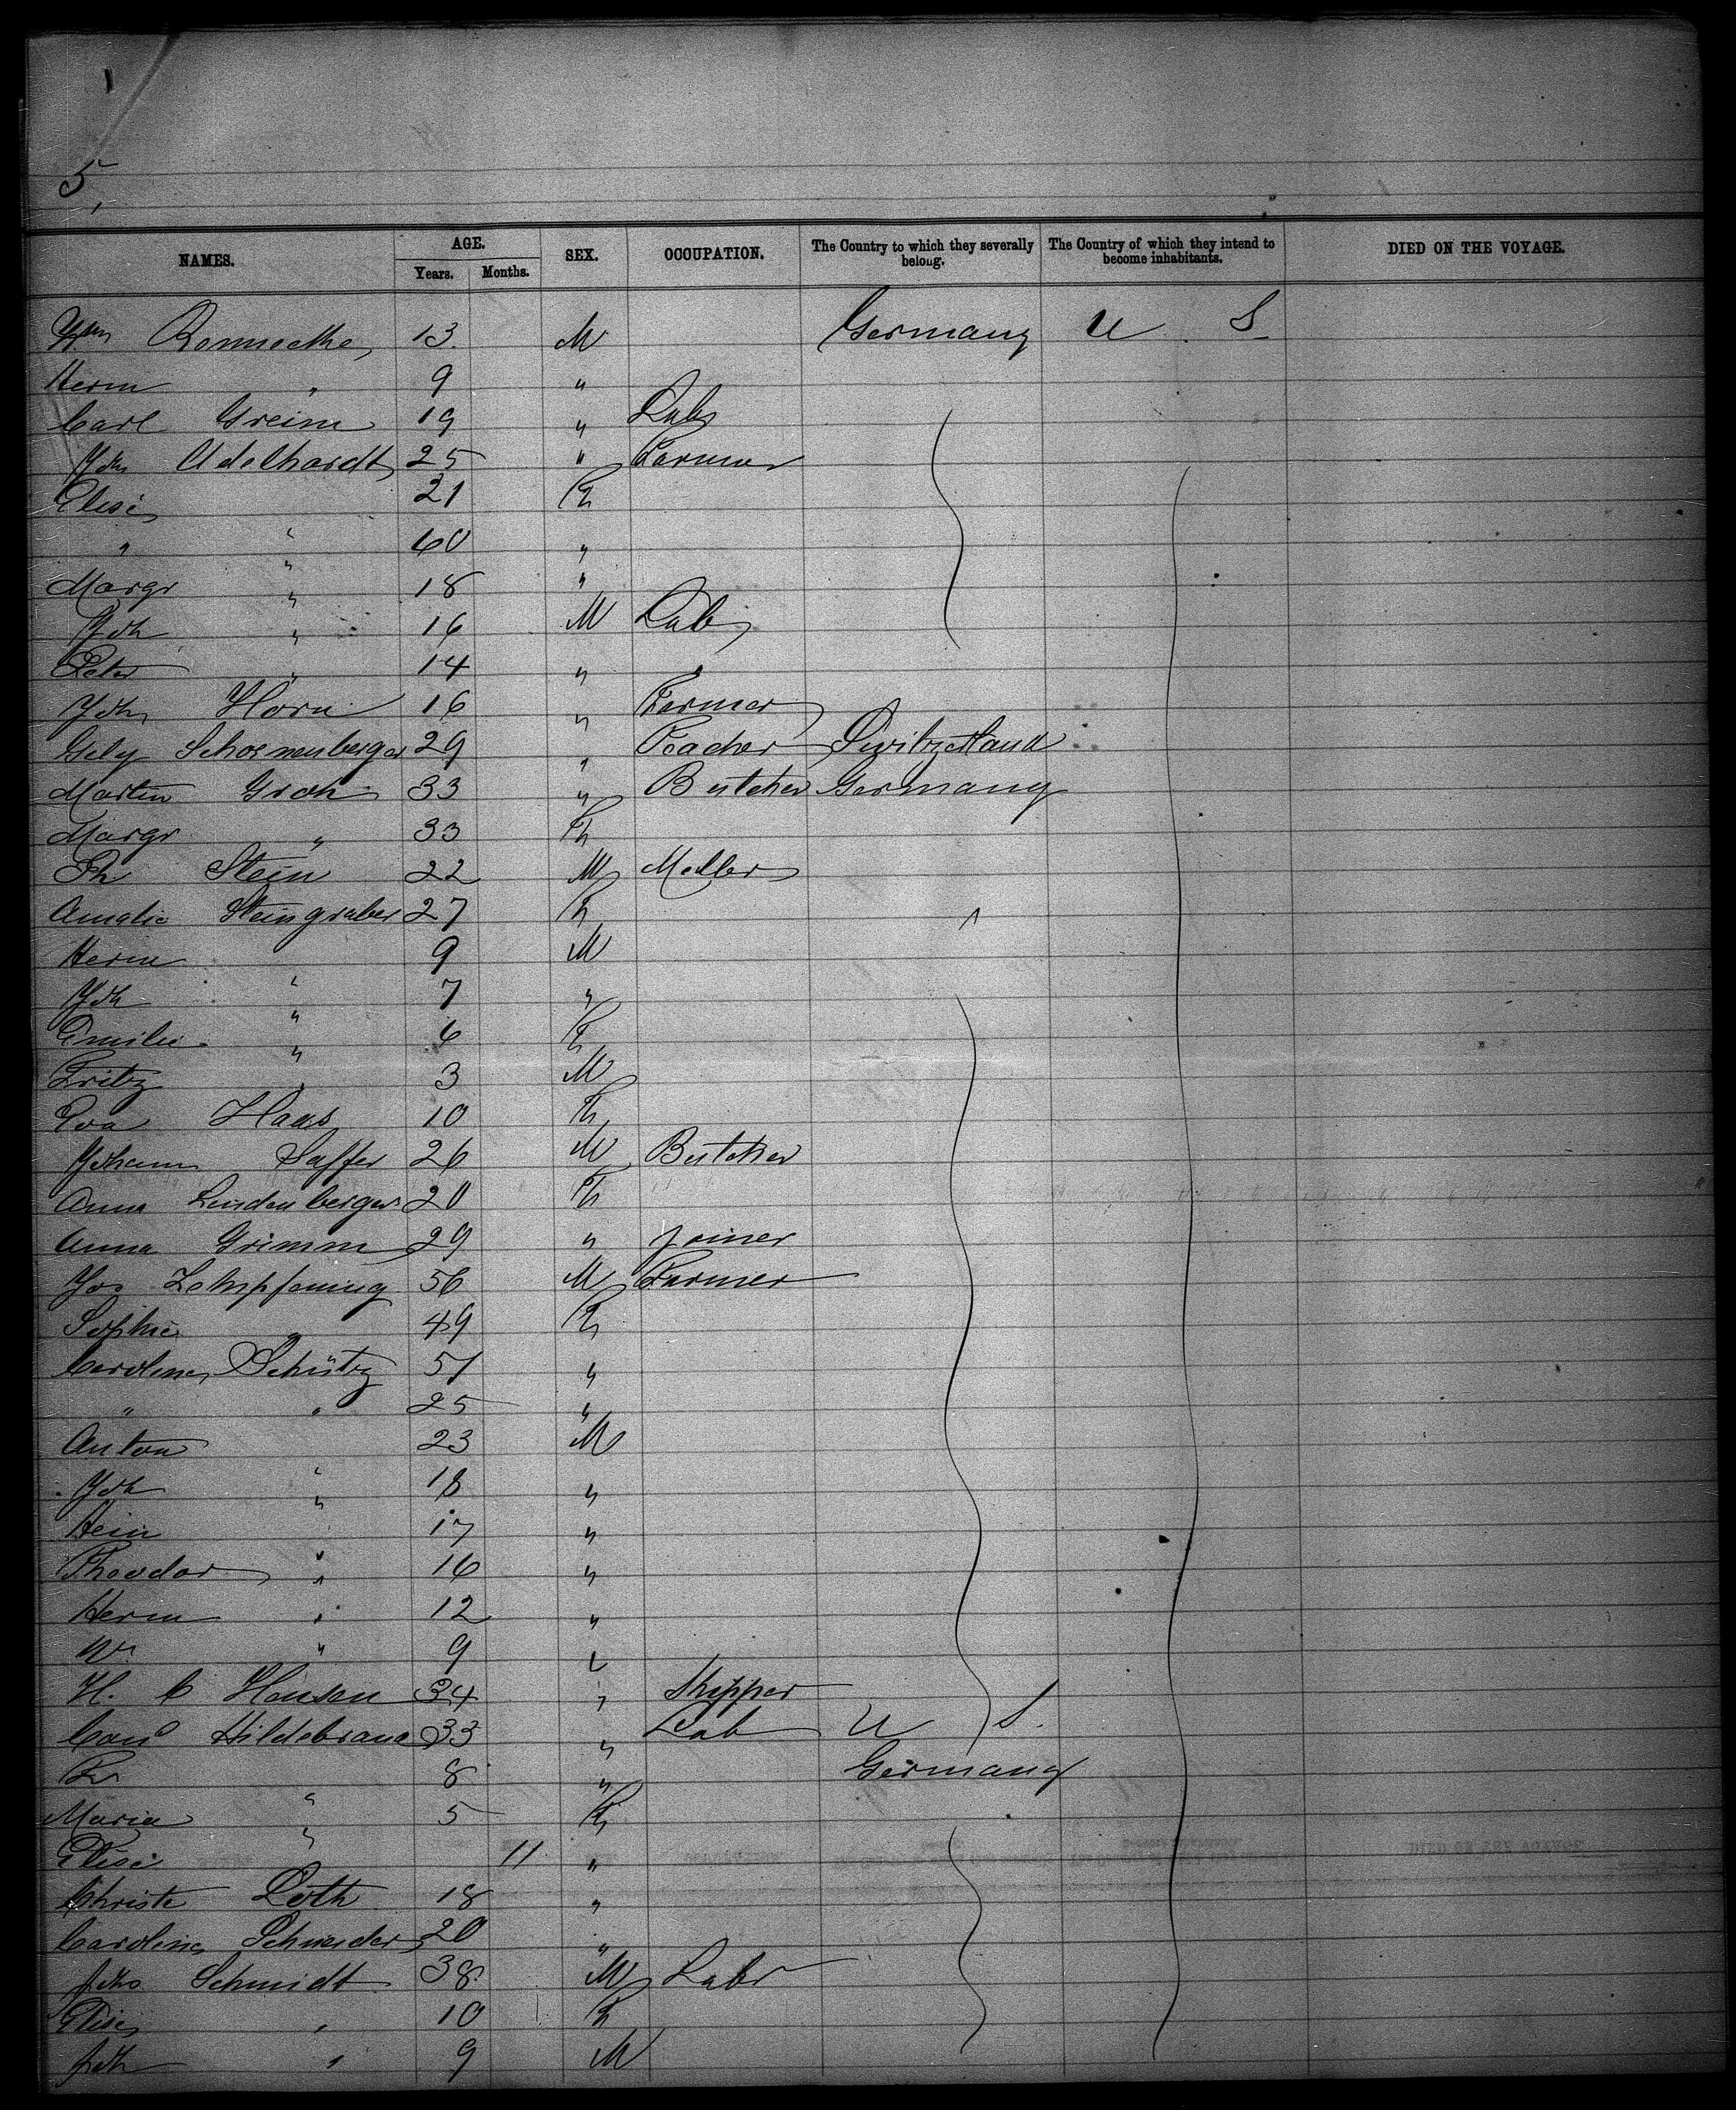 5,
NAMES. AGE. SEX. OCCUPATION. The Country to which they severally belong. The Country of which they intend to become inhabitants. DIED ON THE VOYAGE.
Years. Months.
13 M Germany U S
Herm " 9 "
Carl Greim 19 " Labr
Joh Adelhardt 25 " Farmer
Elise 21 F
" " 60 "
Margr " 18 "
Joh " 16 M Lab
Peter " 14 "
Joh Horn 16 " Farmer
Schoenenberger 29 " Switzerland
Martin Groh 33 " Butcher Germany
Margr " 33 F
Ph Stein 22 M
Amalie Steingraber 27 F
Herm 9 M
Joh " 7 "
Emilie " 6 F
Fritz " 3 M
Eva Haas 10 F
Johann Saffer 26 M Butcher
Anna Lindenberger 20 F
Anna Grimm 29 " Joiner
Jos Zehpfennig 56 M Farmer
Sophie " 49 F
Caroline Schütz 51 "
" " 25 "
Anton 23 M
Joh " 18 "
Hein " 17 "
Theodor " 16 "
Herm " 12 "
W " 9 "
H. C Hansen 34 " Skipper
Hildebrand 33 " Lab U S.
Fr 8 " Germany
Maria " 5 F
Elise " 11 "
Christe Loth 18 "
Caroline Schneider 20 "
Johs Schmidt 38 M Labr
Elise " 10 F
Joh " 9 M